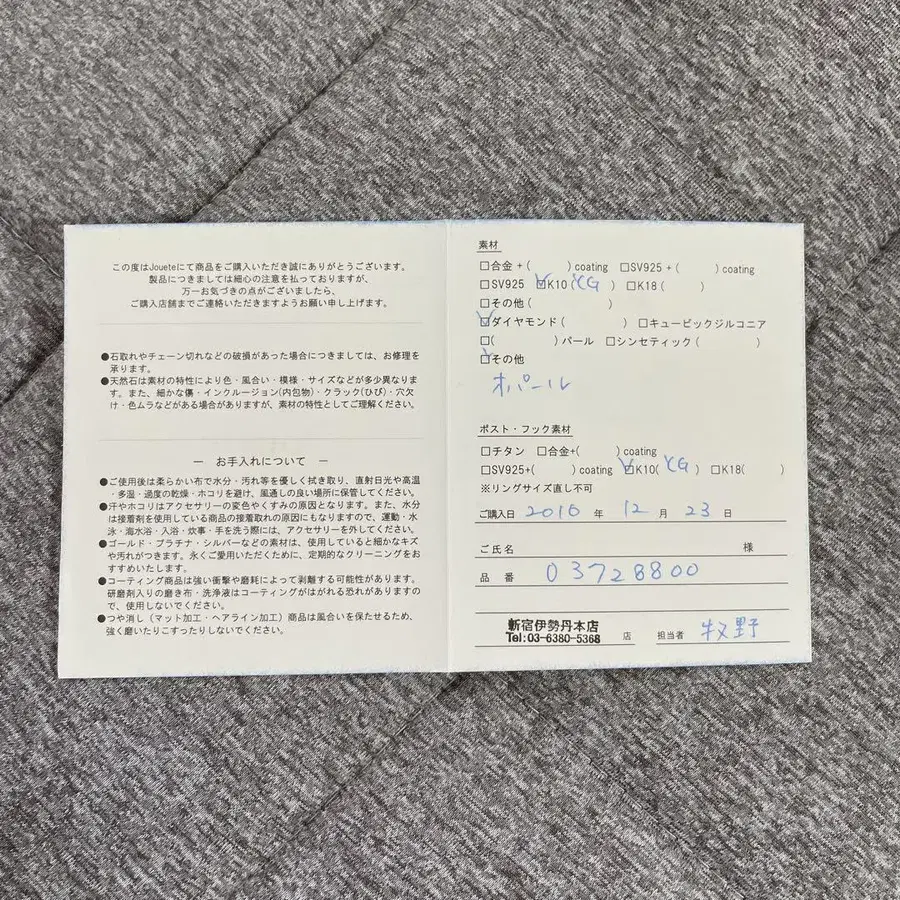 この度はJoueteにて商品をご購入いただき誠にありがとうございます。
製品につきましては細心の注意を払っておりますが、
万一お気づきの点がございましたら、
ご購入店舗までご連絡いただきますようお願い申し上げます。
●石取れやチェーン切れなどの破損があった場合につきましては、お修理を
承ります。
●天然石は素材の特性により色・風合い・模様・サイズなどが多少異なりま
す。また、細かな傷・インクルージョン(内包物)・クラック(ひび)・穴欠
け・色ムラなどがある場合がありますが、素材の特性としてご理解ください。
― お手入れについて ―
●ご使用後は柔らかい布で水分・汚れ等を優しく拭き取り、直射日光や高温
・多湿・過度の乾燥・ホコリを避け、風通しの良い場所に保管してください。
●汗やホコリはアクセサリーの変色やくすみの原因となります。また、水分
は接着剤を使用している商品の接着取れの原因にもなりますので、運動・水
泳・海水浴・入浴・炊事・手を洗う際には、アクセサリーを外してください。
●ゴールド・プラチナ・シルバーなどの素材は、使用していると細かなキズ
や汚れがつきます。永くご愛用いただくために、定期的なクリーニングをお
すすめいたします。
●コーティング商品は強い衝撃や磨耗によって剥離する可能性があります。
研磨剤入りの磨き布・洗浄液はコーティングがはがれる恐れがありますの
で、使用しないでください。
●つや消し(マット加工・ヘアライン加工)商品は風合いを保たせるため、
強く磨いたりこすったりしないでください。
素材
□合金+( ) coating □SV925+( ) coating
□SV925 ☑K10(YG) □K18( )
□その他( )
☑ダイヤモンド( ) □キュービックジルコニア
□( )パール □シンセティック( )
☑その他
オパール
ポスト・フック素材
□チタン □合金+( ) coating
□SV925+( ) coating ☑K10(YG) □K18( )
※リングサイズ直し不可
ご購入日 2016 年 12 月 23 日
ご氏名 様
品番 03728800
新宿伊勢丹本店
Tel:03-6380-5368 店 担当者 牧野